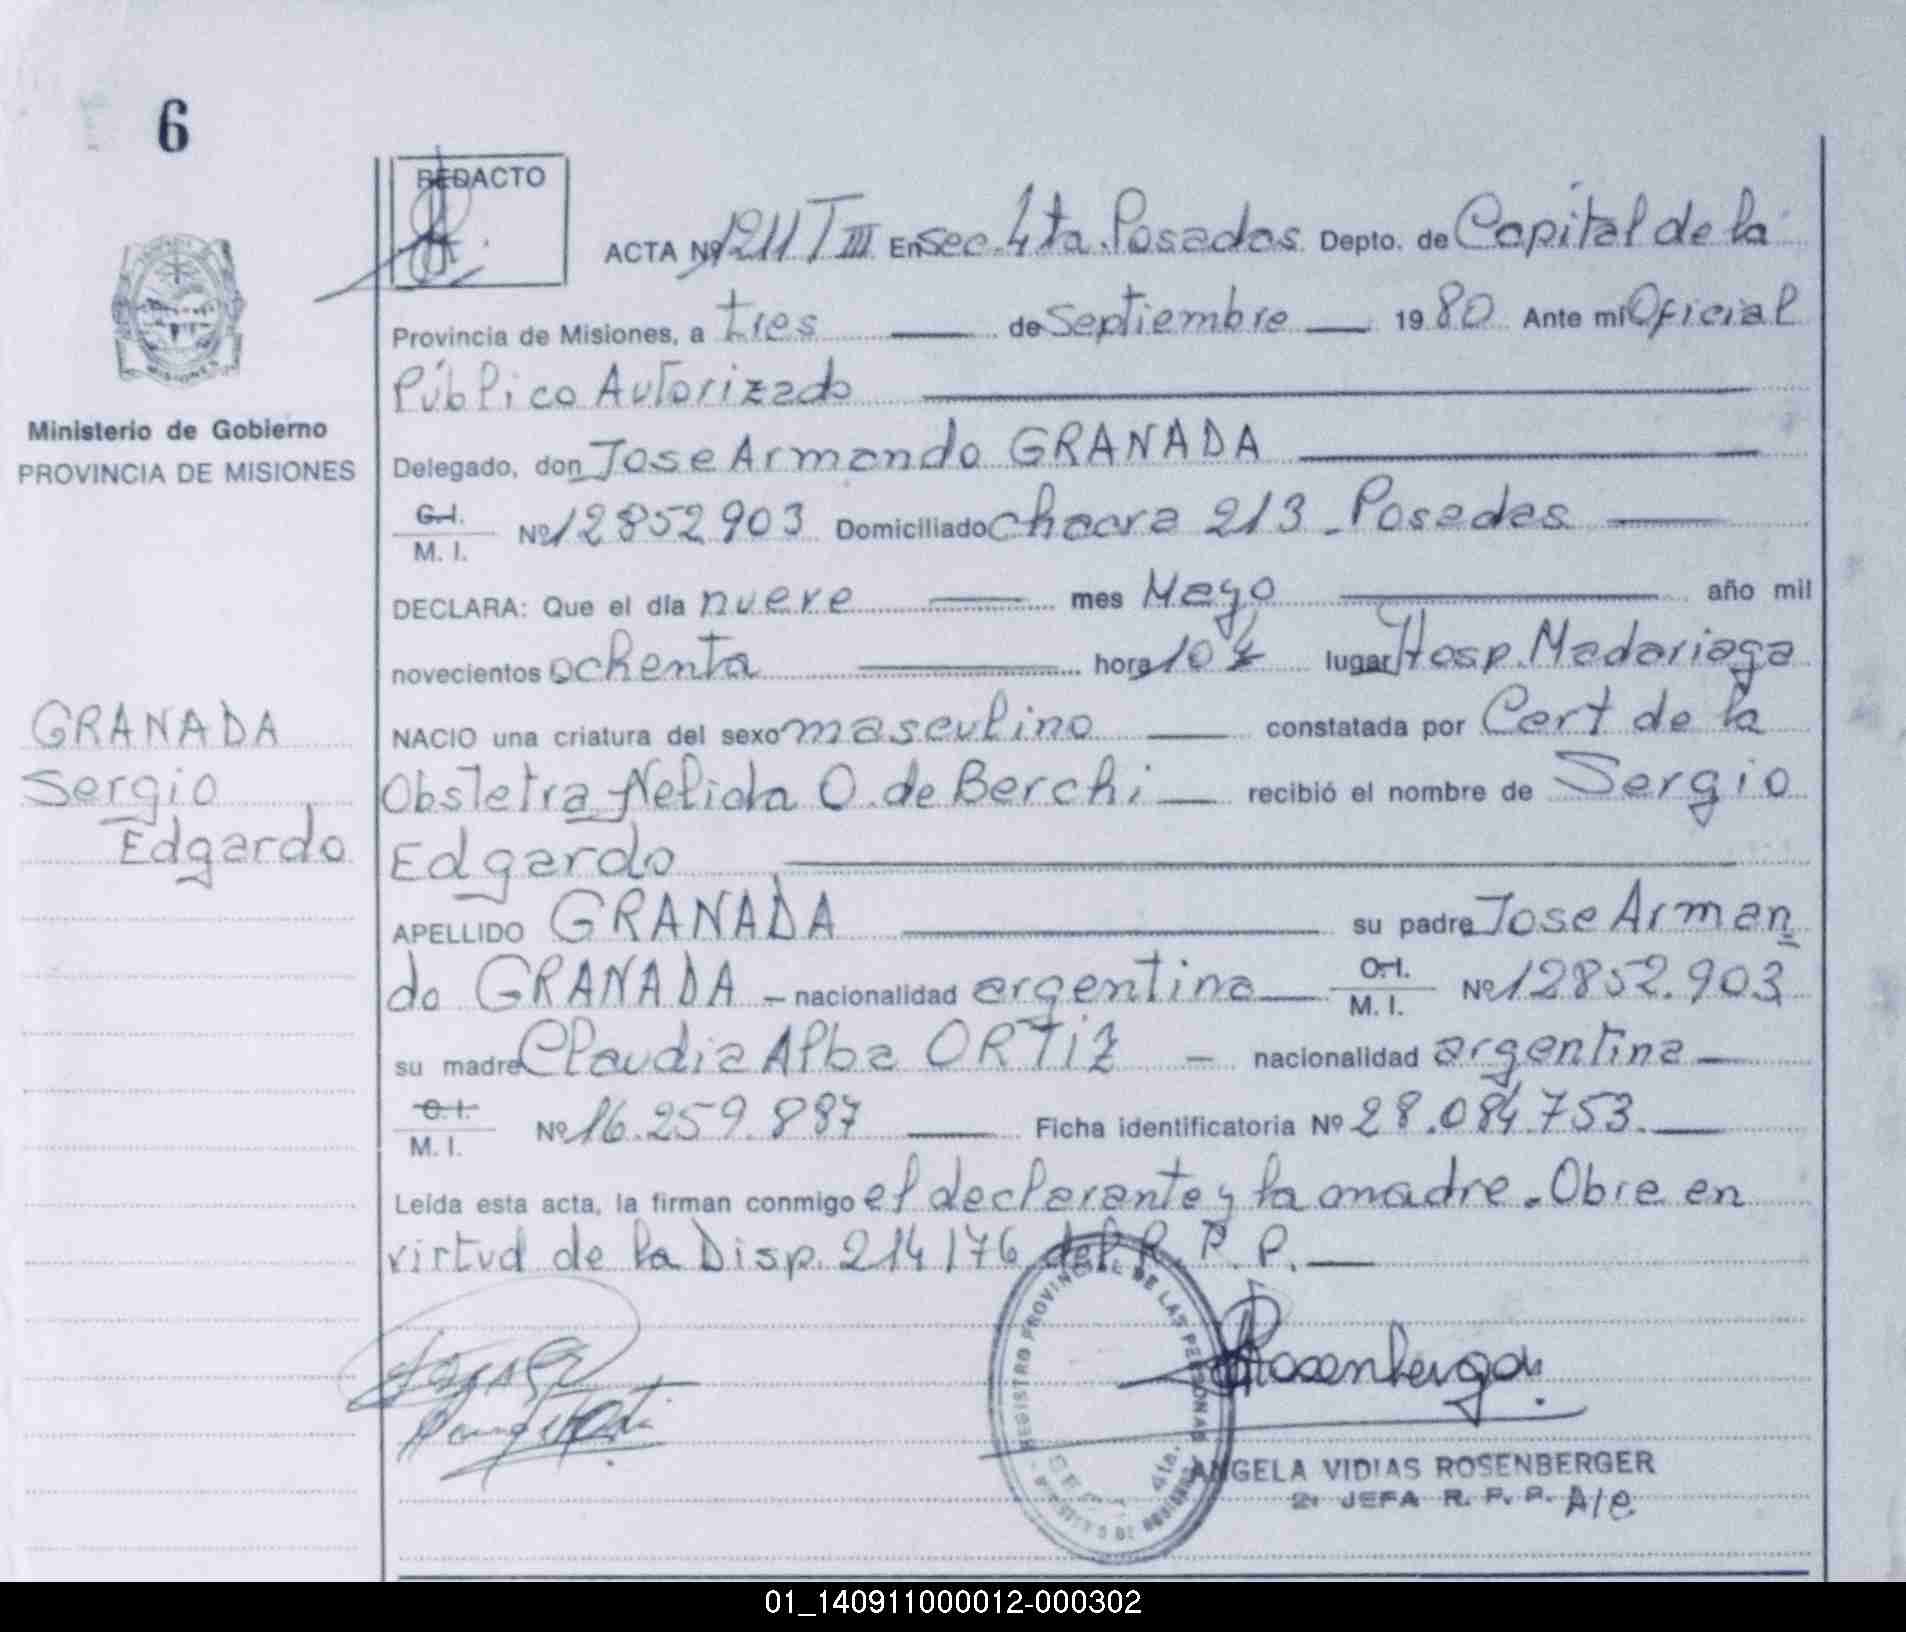 6
REDACTO
ACTA Nº 1211 T III En sec. 4ta. Posadas Depto. de Capital de la
Provincia de Misiones, a tres de Septiembre 1980 Ante mi Oficial
Público Autorizado
Ministerio de Gobierno
PROVINCIA DE MISIONES
Delegado, don Jose Armando GRANADA
C.I. M. I. Nº 12852.903 Domiciliado chacra 213 - Posadas
DECLARA: Que el día nueve mes Mayo año mil
novecientos ochenta hora 10 lugar Hosp. Madariaga
GRANADA
Sergio
Edgardo
NACIO una criatura del sexo masculino constatada por Cert de la
Obstetra Nelida O. de Berchi recibió el nombre de Sergio
Edgardo
APELLIDO GRANADA su padre Jose Arman
do GRANADA - nacionalidad argentina C.I. M. I. Nº 12852.903
su madre Claudia Alba ORTIZ - nacionalidad argentina
C.I. M. I. Nº 16.259.887 Ficha identificatoria Nº 28.084.753.
Leída esta acta, la firman conmigo el declarante y la madre. Obre en
virtud de la Disp. 214/76 del R. P. P.
REGISTRO PROVINCIAL DE LAS PERSONAS
4ta.
Rosenberger
ANGELA VIDIAS ROSENBERGER
2: JEFA R. P. P. A/C
01_140911000012-000302